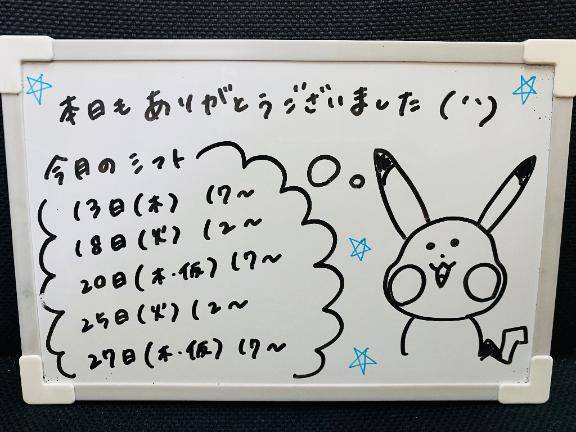 本日も ありがとうございました (¨)
今月のシフト
13日(木) 17〜
18日(火) 12〜
20日(木・仮) 17〜
25日(火) 12〜
27日(木・仮) 17〜